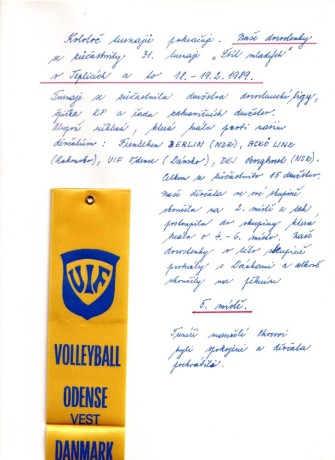 Kolotoč turnajů pokračuje. Naše dorostenky
se zúčastnily 31. turnaje „Štít mladých"
v Teplicích a to 18.-19.2.1989.
Turnaje se zúčastnila družstva dorostenecké ligy,
ČP a řada zahraničních družstev.
která hrála proti našim
děvčatům: BERLIN (NSR), LINZ
(Rakousko), VIF Odense (Dánsko), (NSR).
Celkem se zúčastnilo 15 družstev.
Naše děvčata ve své skupině
skončila na 2. místě a tak
postoupila do skupiny která
hrála o 4.-6. místo. Naše
dorostenky v této skupině
prohrály s Dánkami a
skončily na pěkném
5. místě.
Trenéři manželé
byli spokojeni a děvčata
pochválili.
VIF
VOLLEYBALL
ODENSE
VEST
DANMARK